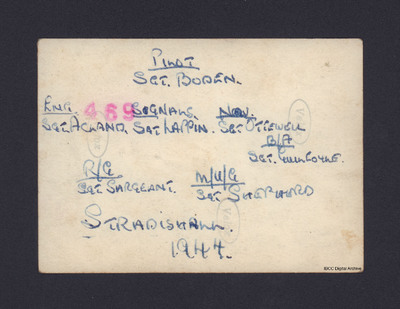 PILOT
SGT. BODEN.
ENG. 469 SIGNALS. NAV.
SGT. ACLAND. SGT LAPPIN. SGT OTTEWELL
B/A
SGT. GUILFOYLE.
R/G M/U/G
SGT SARGEANT. SGT SHEPHERD
STRADISHALL
1944.
IBCC Digital Archive